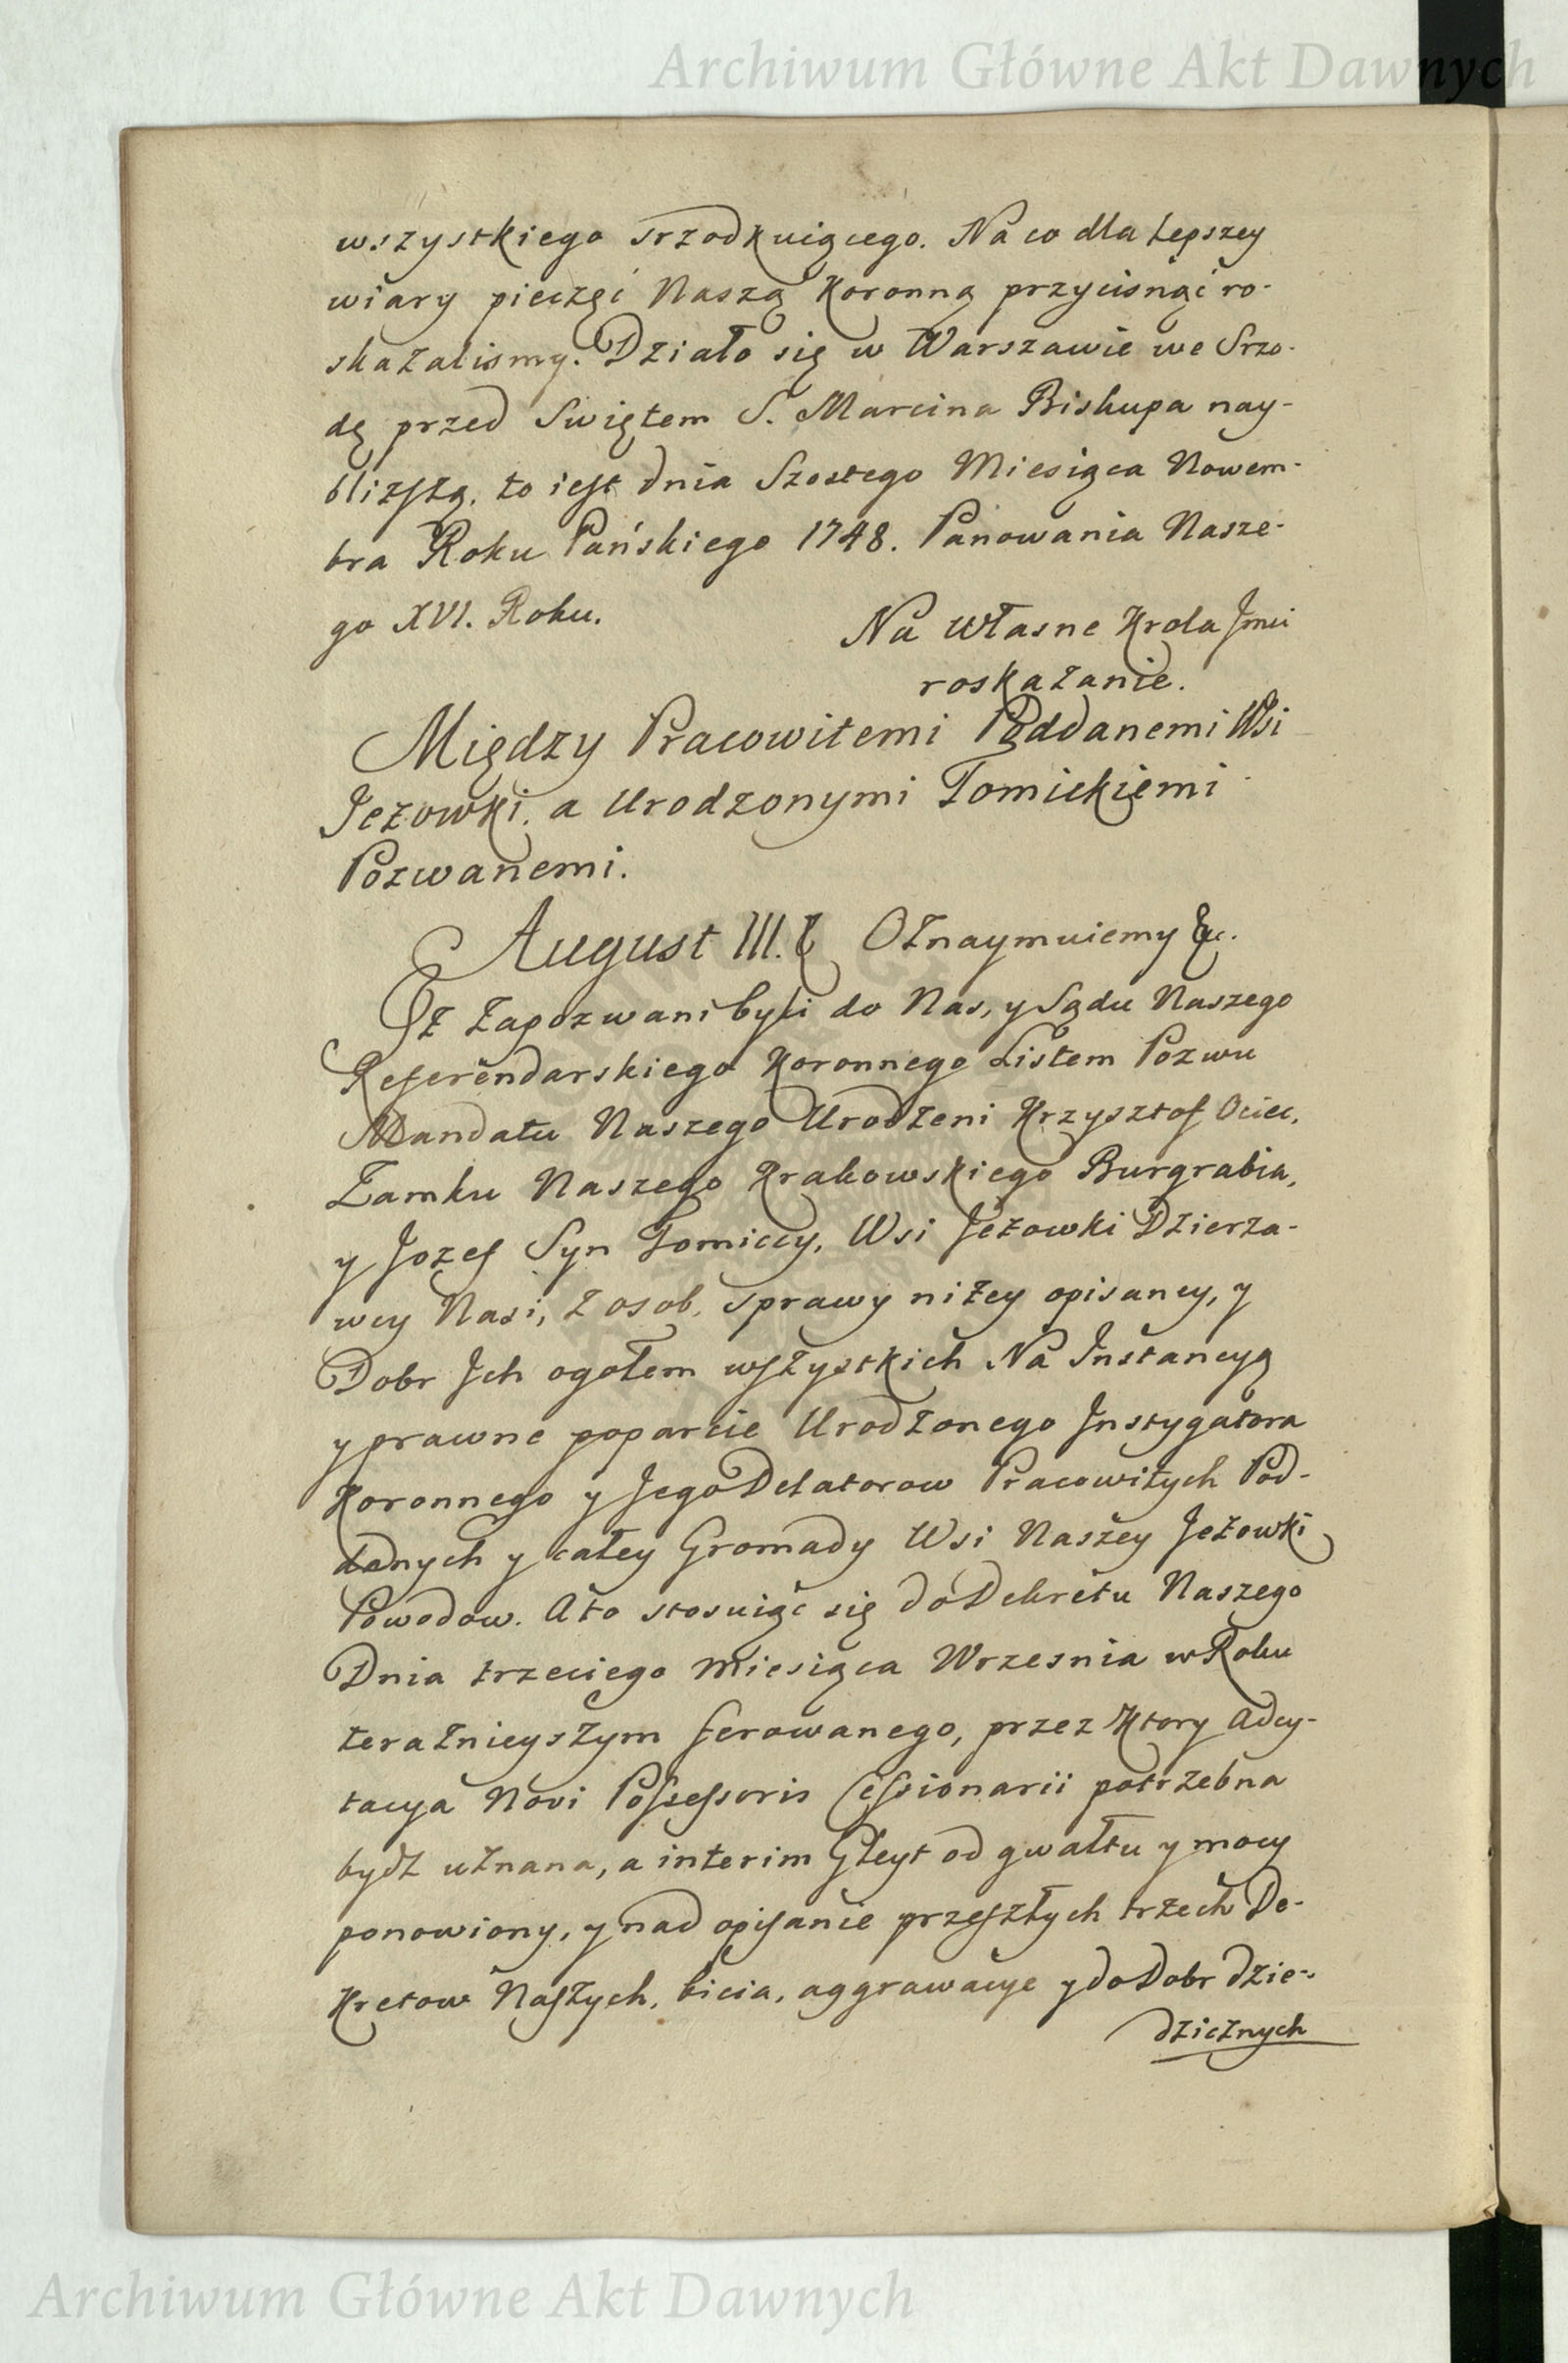 Archiwum Główne Akt Dawnych
wszystkiego srzodkuiącego. Na co dla lepszey
wiary pieczęć Naszą Koronną przycisnąć ro-
skazalismy. Działo się w Warszawie we Srzo-
dę przed Swiętem S. Marcina Biskupa nay-
blizszą, to iest dnia Szostego Miesiąca Nowem-
bra Roku Pańskiego 1748. Panowania Nasze-
go XVI. Roku.
Na własne Krola Jmci
roskazanie.
Między Pracowitemi Poddanemi Wsi
Jezowki, a Urodzonymi Tomickiemi
Pozwanemi.
August III. Oznaymuiemy &c.
Iz zapozwani byli do Nas, y Sądu Naszego
Referendarskiego Koronnego Listem Pozwu
Mandatu Naszego Urodzeni Krzysztof Ociec,
Zamku Naszego Krakowskiego Burgrabia,
y Jozef Syn Tomiccy, Wsi Jezowki Dzierza-
wcy Nasi, z osob, sprawy nizey opisaney, y
Dobr Ich ogołem wszystkich Na Instancyą
y prawne poparcie Urodzonego Instygatora
Koronnego y Jego Delatorow Pracowitych Pod-
danych y całey Gromady Wsi Naszey Jezowki
Powodow. A to stosuiąc się do Dekretu Naszego
Dnia trzeciego Miesiąca Wrzesnia w Roku
teraznieyszym ferowanego, przez Ktory Adcy-
tacya Novi Possessoris Cessionarii potrzebna
bydz uznana, a interim Gleyt od gwałtu y mocy
ponowiony, y nad opisanie przeszłych trzech De-
kretow Naszych, bicia, aggrawacye y do Dobr dzie-
dzicznych
Archiwum Główne Akt Dawnych